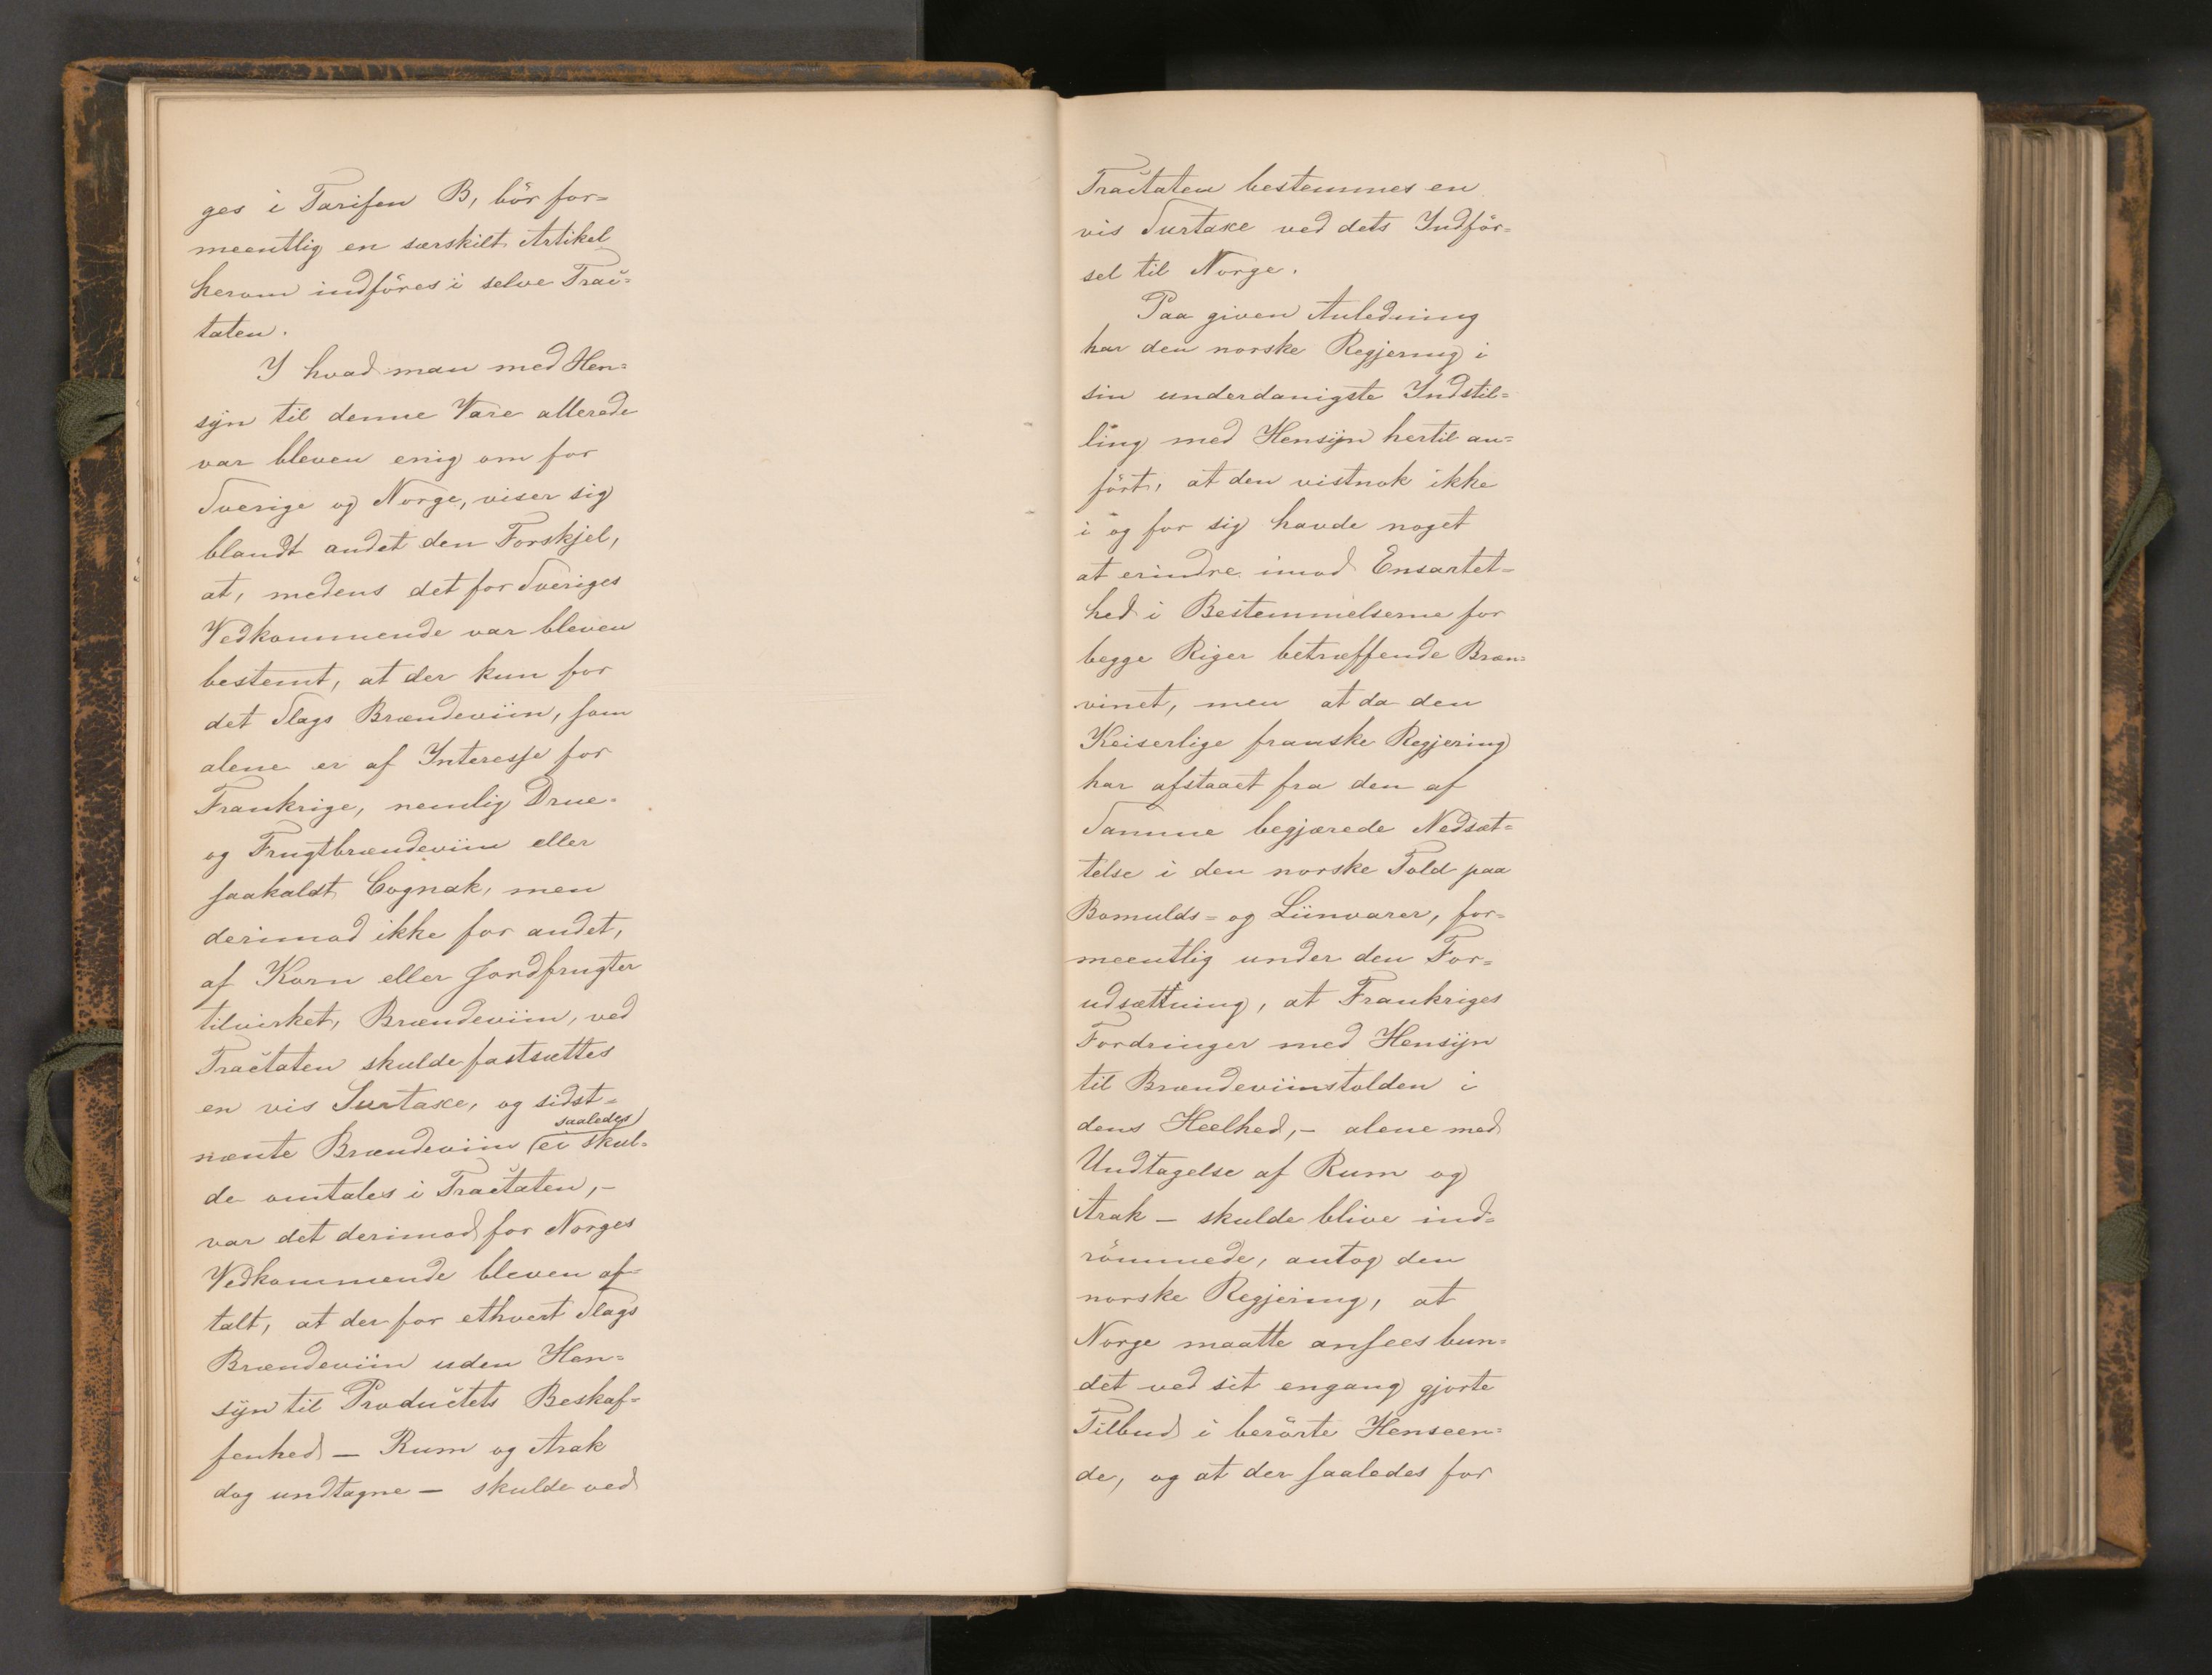 ges i Tarifen B, bör for=
meentlig en særskilt Artikel
herom indföres i selve Trac=
taten.
I hvad man med Hen=
syn til denne Vare allerede
var bleven enig om for
Sverige og Norge, viser sig
blandt andet den Forskjel,
at, medens det for Sveriges
Vedkommende var bleven
bestemt, at der kun for
det Slags Brændeviin, som
alene er af Interesse for
Frankrige, nemlig Drue-
og Frugtbrændeviin eller
saakaldt Cognak, men
derimod ikke for andet,
af Korn eller Jordfrugter
tilvirket, Brændeviin, ved
Tractaten skulde fastsættes
en vis Surtaxe, og sidst=
saaledes
nænte Brændeviin ei skul=
de omtales i Tractaten,–
var det derimod for Norges
Vedkommende bleven af=
talt, at der for ethvert Slags
Brændeviin uden Hen=
syn til Productets Beskaf=
fenhed – Rum og Arak
dog undtagne – skulde ved
Tractaten bestemmes en
vis Surtaxe ved dets Indför=
sel til Norge.
Paa given Anledning
har den norske Regjering i
sin underdanigste Indstil=
ling med Hensyn hertil an=
fört, at den vistnok ikke
i og for sig havde noget
at erindre imod Ensartet=
hed i Bestemmelserne for
begge Riger betræffende Bræn=
vinet, men at da den
Keiserlige franske Regjering
har afstaaet fra den af
Samme begjærede Nedsæt=
telse i den norske Told paa
Bomulds= og Liinvarer, for=
meentlig under den For=
udsættning, at Frankriges
Fordringer med Hensyn
til Brændeviinstolden i
dens Heelhed,– alene med
Undtagelse af Rum og
Arak – skulde blive ind=
römmede, antog den
norske Regjering, at
Norge maatte ansees bun=
det ved sit engang gjorte
Tilbud i berörte Henseen=
de, og at der saaledes for